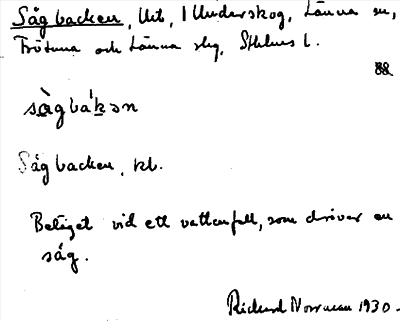 Sågbacken, Unt, 1 Underskog, Länna sn,
Frötuna och Länna slg, Sthlms l.
sàgbákən
Sågbacken, kl.
Beläget vid ett vattenfall, som driver en
såg.
Richard Norrman 1930.